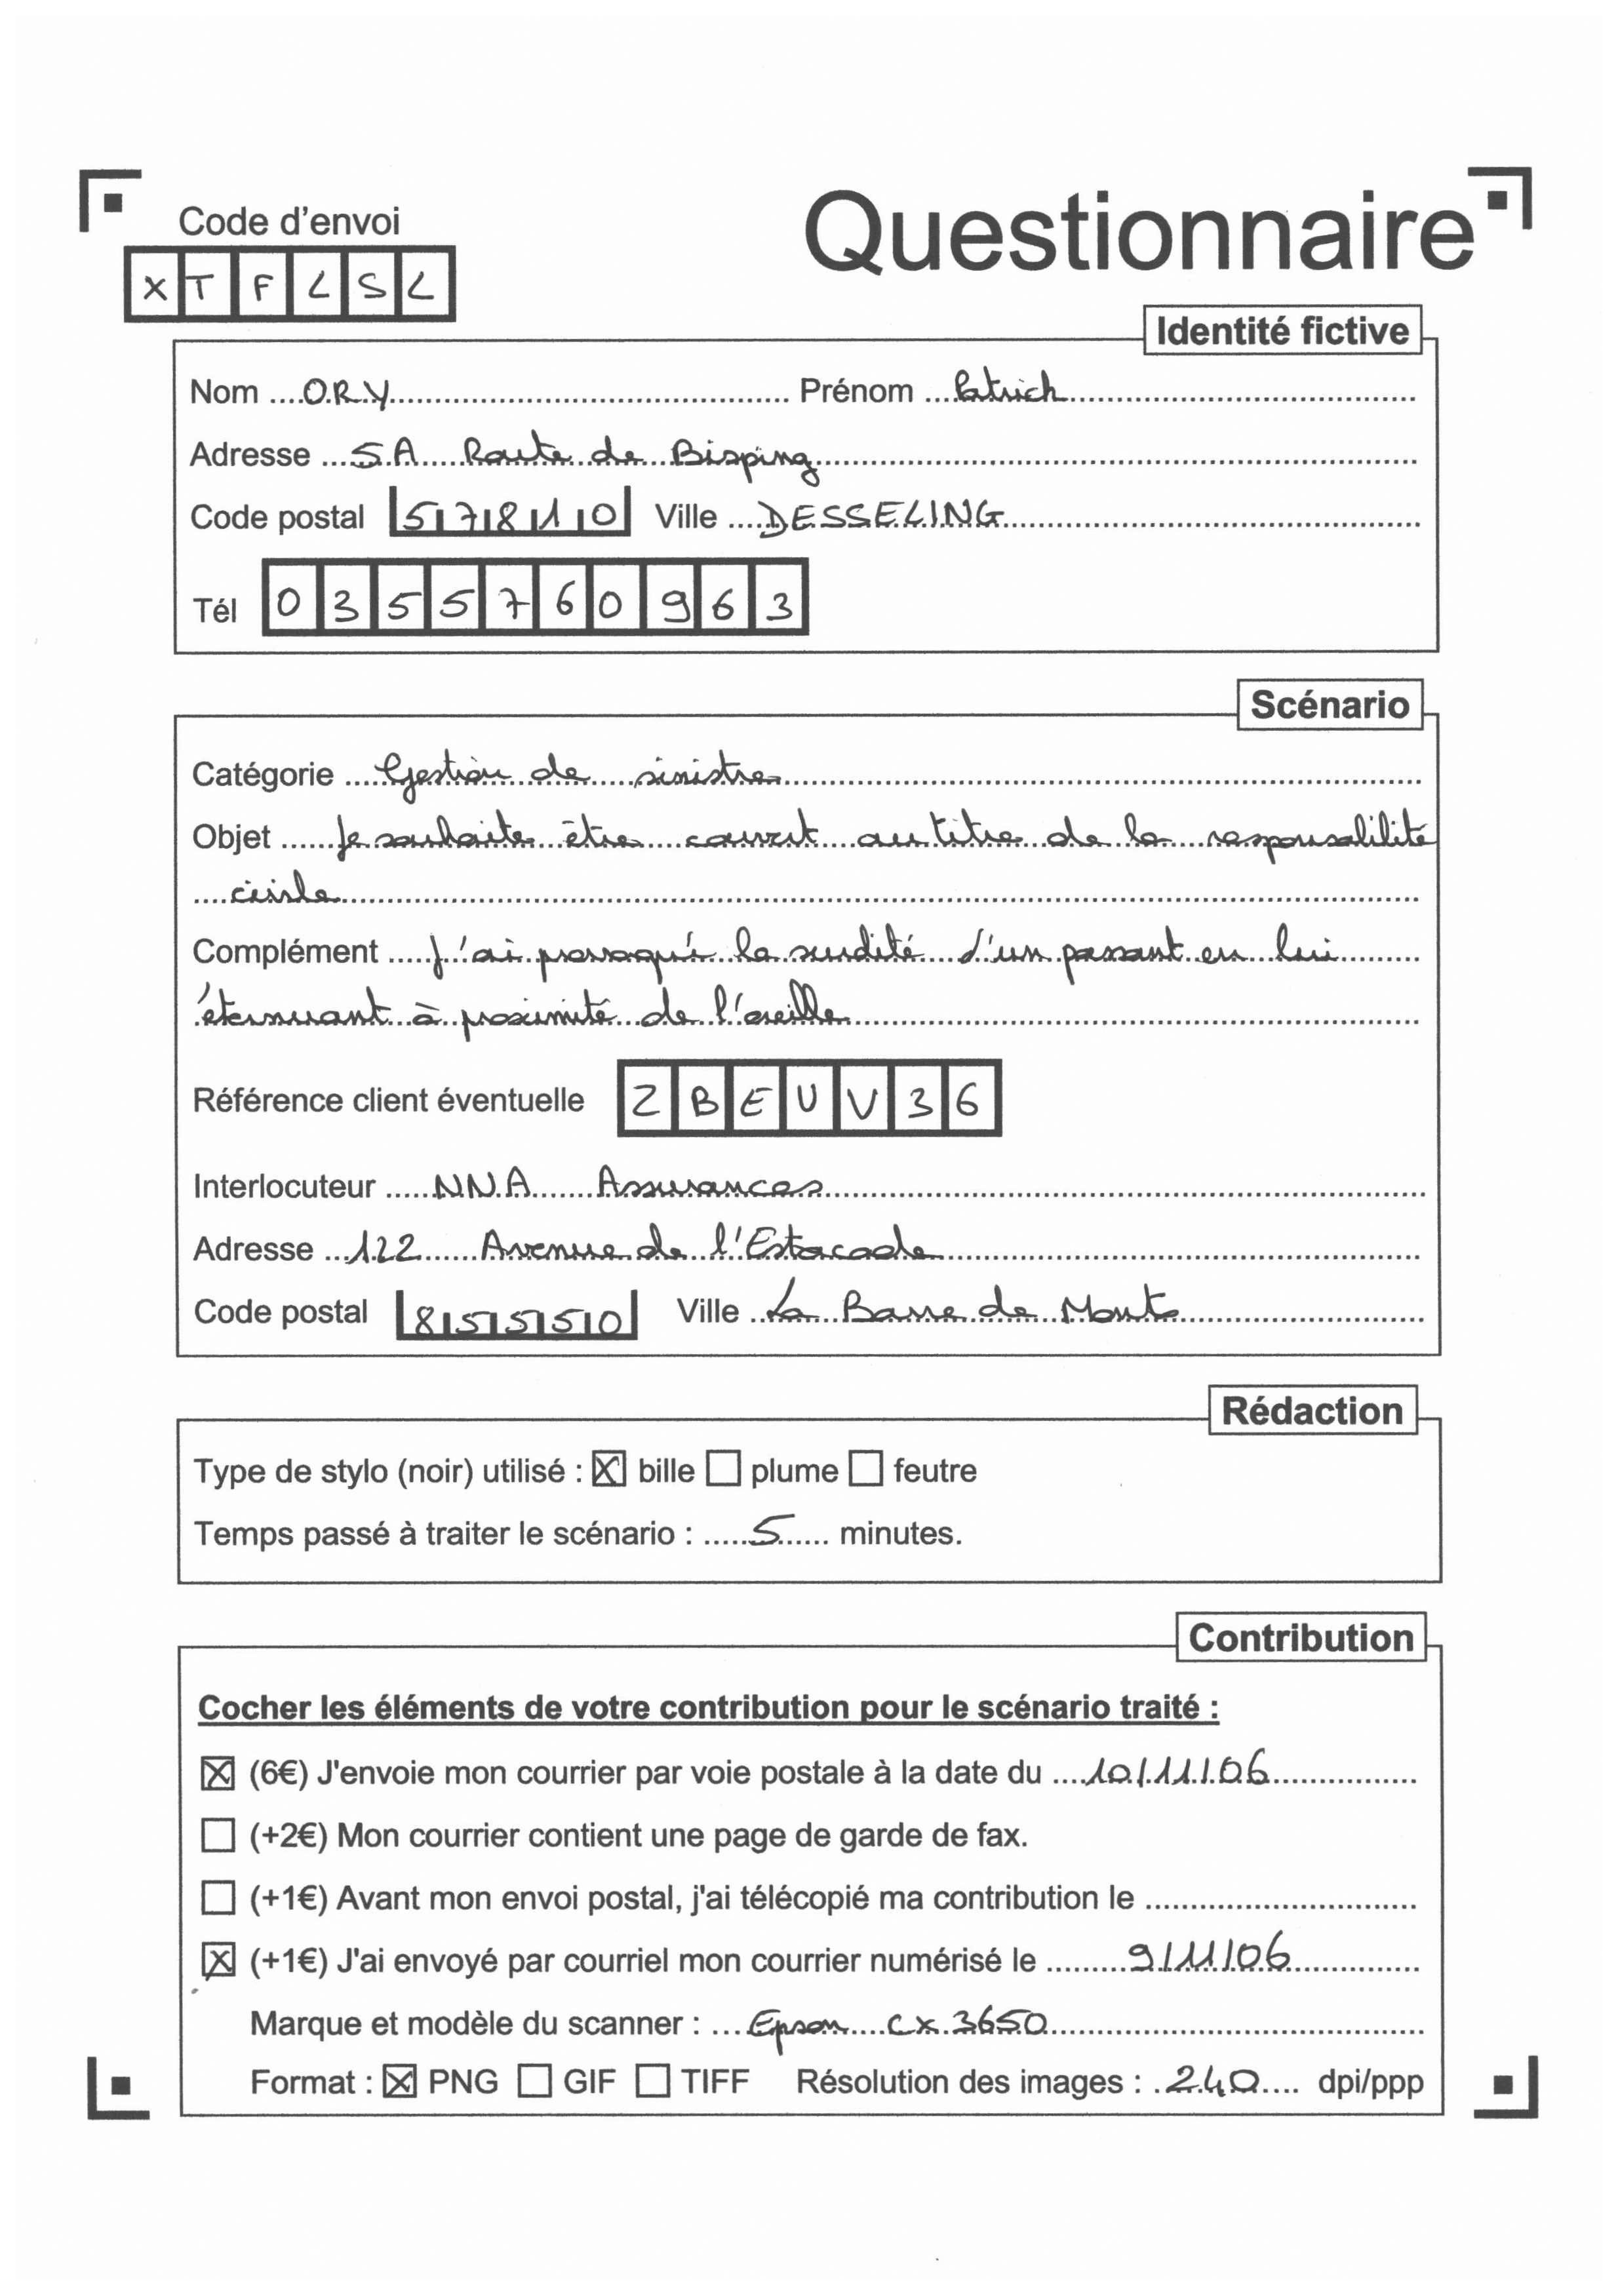 Questionnaire
Code d'envoi
XTFLSL
Identité fictive
Nom ORY Prénom Patrick
Adresse 5A Route de Bisping
Code postal 57810 Ville DESSELING
Tél 0355760963
Scénario
Catégorie Gestion de sinistre
Objet Je souhaite être couvert au titre de la responsabilité
civile
Complément J'ai provoqué la surdité d'un passant en lui
éternuant à proximité de l'oreille
Référence client éventuelle ZBEUV36
Interlocuteur NNA Assurances
Adresse 122 Avenue de l'Estacade
Code postal 85550 Ville La Barre de Monts
Rédaction
Type de stylo (noir) utilisé : ☒ bille ☐ plume ☐ feutre
Temps passé à traiter le scénario : 5 minutes.
Contribution
Cocher les éléments de votre contribution pour le scénario traité :
☒ (6€) J'envoie mon courrier par voie postale à la date du 10/11/06
☐ (+2€) Mon courrier contient une page de garde de fax.
☐ (+1€) Avant mon envoi postal, j'ai télécopié ma contribution le
☒ (+1€) J'ai envoyé par courriel mon courrier numérisé le 9/11/06
Marque et modèle du scanner : Epson cx 3650
Format : ☒ PNG ☐ GIF ☐ TIFF Résolution des images : 240 dpi/ppp